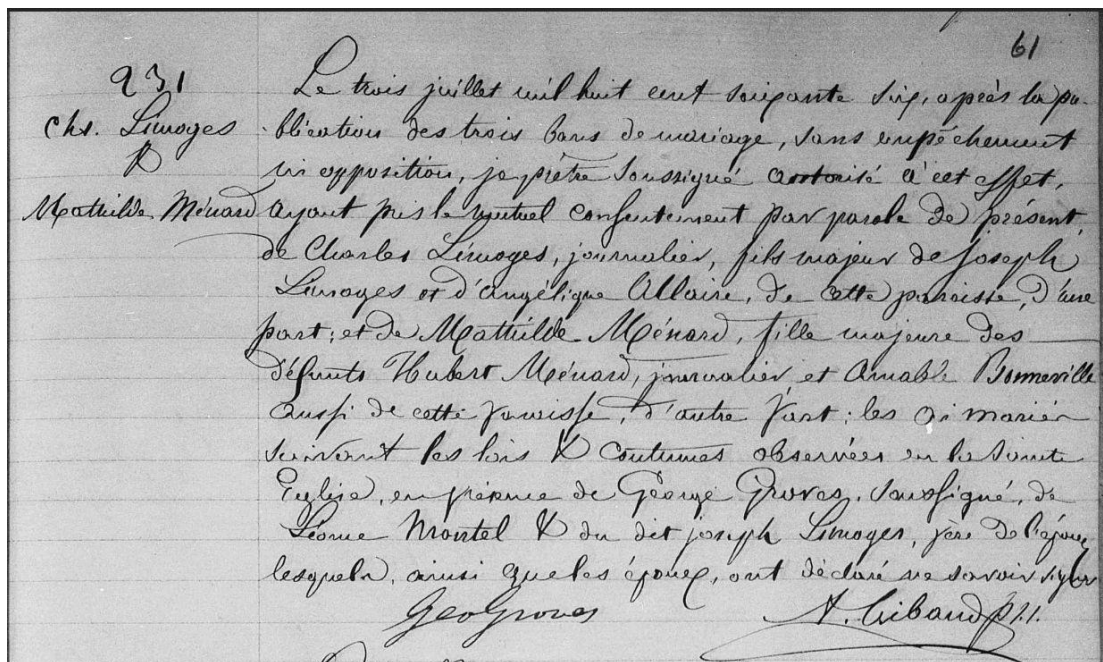 61
231
Chs. Limoges
&
Mathilde Ménard
Le trois juillet mil huit cent soixante six, après la pu-
blication des trois bans de mariage, sans empêchement
ni opposition, je prêtre soussigné autorisé à cet effet,
ayant pris le mutuel consentement par parole de présent,
de Charles Limoges, journalier, fils majeur de Joseph
Limoges et d'angélique Allaire, de cette paroisse, d'une
part; et de Mathilde Ménard, fille majeure des
défunts Hubert Ménard, journalier et Amable Bonneville
aussi de cette paroisse, d'autre part; les ai mariés
suivant les lois & coutumes observées en la Sainte
Eglise, en présence de George Groves, soussigné, de
Martel & du dit joseph Limoges, père de l'époux
lesquels, ainsi que les époux, ont déclaré ne savoir signer
Geo Groves
A. Gibaud p.s.s.